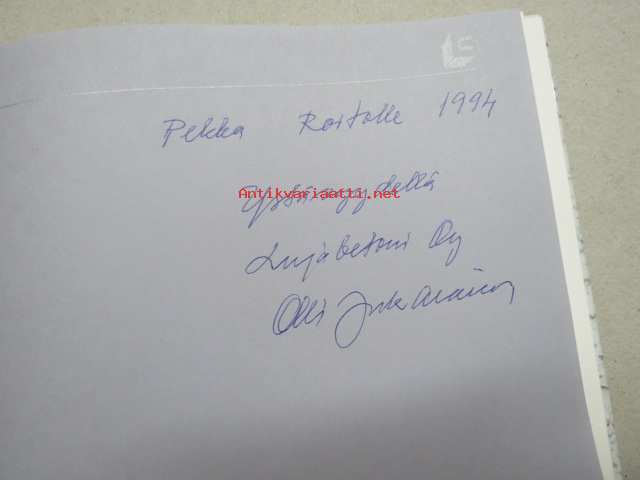 LS
Pekka Rostolle 1994
Ystävyydellä
Antikvariaatti.net
Lujabetoni Oy